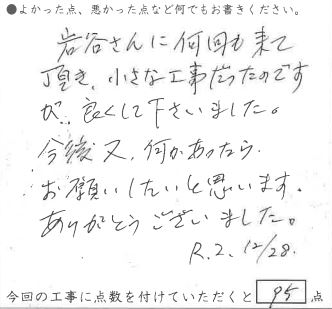 ●よかった点、悪かった点など何でもお書きください。
岩谷さんに何回も来て
頂き、小さな工事だったのです
が、良くして下さいました。
今後又、何かあったら
お願いしたいと思います。
ありがとうございました。
R.2.12/28.
今回の工事に点数を付けていただくと 95 点